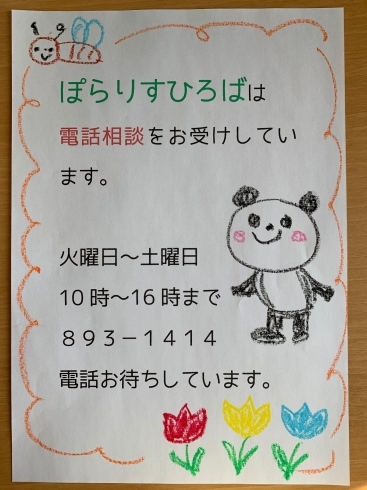 ぽらりすひろばは
電話相談をお受けしてい
ます。
火曜日〜土曜日
10時〜16時まで
８９３－１４１４
電話お待ちしています。